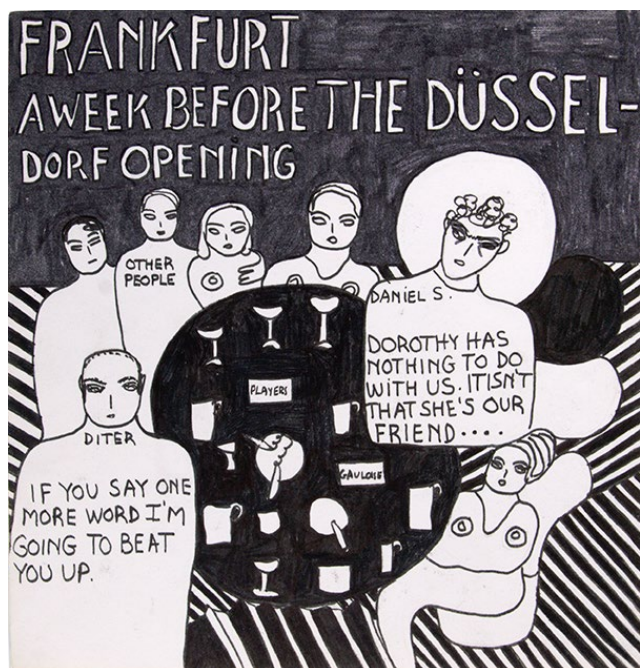 FRANKFURT
A WEEK BEFORE THE DÜSSEL-
DORF OPENING
OTHER
PEOPLE
DANIEL S.
DOROTHY HAS
NOTHING TO DO
WITH US. IT ISN'T
THAT SHE'S OUR
FRIEND....
PLAYERS
GAULOISE
DITER
IF YOU SAY ONE
MORE WORD I'M
GOING TO BEAT
YOU UP.